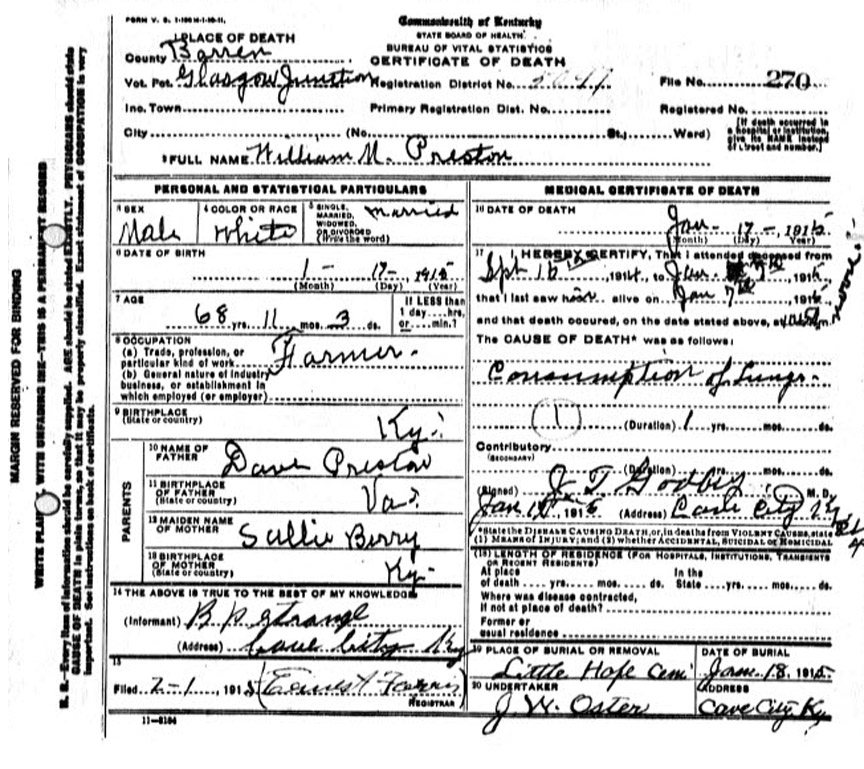 FORM V. S.
Commonwealth of Kentucky
STATE BOARD OF HEALTH.
BUREAU OF VITAL STATISTICS
CERTIFICATE OF DEATH
1 PLACE OF DEATH
County Barren
Vot. Pct. Glasgow Junction Registration District No. File No. 270
Ino. Town Primary Registration Dist. No. Registered No.
City (No. St.; Ward)
[If death occurred in a hospital or institution, give its NAME instead of street and number.]
2 FULL NAME William M. Preston
PERSONAL AND STATISTICAL PARTICULARS
3 SEX
Male
4 COLOR OR RACE
White
5 SINGLE, MARRIED, WIDOWED, OR DIVORCED (Write the word)
Married
6 DATE OF BIRTH
1- 17- 1915
(Month) (Day) (Year)
7 AGE
68 yrs. 11 mos. 3 ds.
If LESS than 1 day....hrs. or....min.?
8 OCCUPATION
(a) Trade, profession, or particular kind of work Farmer.
(b) General nature of industry business, or establishment in which employed (or employer)
9 BIRTHPLACE
(State or country) Ky.
PARENTS
10 NAME OF FATHER Dave Preston
11 BIRTHPLACE OF FATHER
(State or country) Va.
12 MAIDEN NAME OF MOTHER Sallie Berry
13 BIRTHPLACE OF MOTHER
(State or country) Ky.
14 THE ABOVE IS TRUE TO THE BEST OF MY KNOWLEDGE
(Informant) B P Strange
(Address) Cave City Ky
15
Filed 2-1, 1915 Ernest Ferris
REGISTRAR
11-8184
MEDICAL CERTIFICATE OF DEATH
16 DATE OF DEATH
Jan- 17-, 1915
(Month) (Day) (Year)
17 I HEREBY CERTIFY, That I attended deceased from
Spt 16, 1914, to Jan 7th, 1915,
that I last saw him alive on Jan 7th, 1915,
and that death occured, on the date stated above, at
The CAUSE OF DEATH* was as follows:
Consumption of Lungs.
(1) (Duration) 1 yrs. mos. ds.
Contributory
(SECONDARY)
(Duration) yrs. mos. ds.
(Signed) J T Godby M. D.
Jan, 1915 (Address) Cave City
*State the DISEASE CAUSING DEATH, or, in deaths from VIOLENT CAUSES, state
(1) MEANS OF INJURY; and (2) whether ACCIDENTAL, SUICIDAL or HOMICIDAL
(18) LENGTH OF RESIDENCE (FOR HOSPITALS, INSTITUTIONS, TRANSIENTS OR RECENT RESIDENTS)
At place of death .... yrs. mos. ds. In the State .... yrs. mos. ds.
Where was disease contracted,
If not at place of death?
Former or
usual residence
19 PLACE OF BURIAL OR REMOVAL
Little Hope Cem
DATE OF BURIAL
Jan. 18, 1915
20 UNDERTAKER
J. W. Oster
ADDRESS
Cave City Ky
MARGIN RESERVED FOR BINDING
WRITE PLAINLY, WITH UNFADING INK—THIS IS A PERMANENT RECORD
N. B.—Every item of information should be carefully supplied. AGE should be stated EXACTLY. PHYSICIANS should state
CAUSE OF DEATH in plain terms, so that it may be properly classified. Exact statement of OCCUPATION is very
important. See instructions on back of certificate.